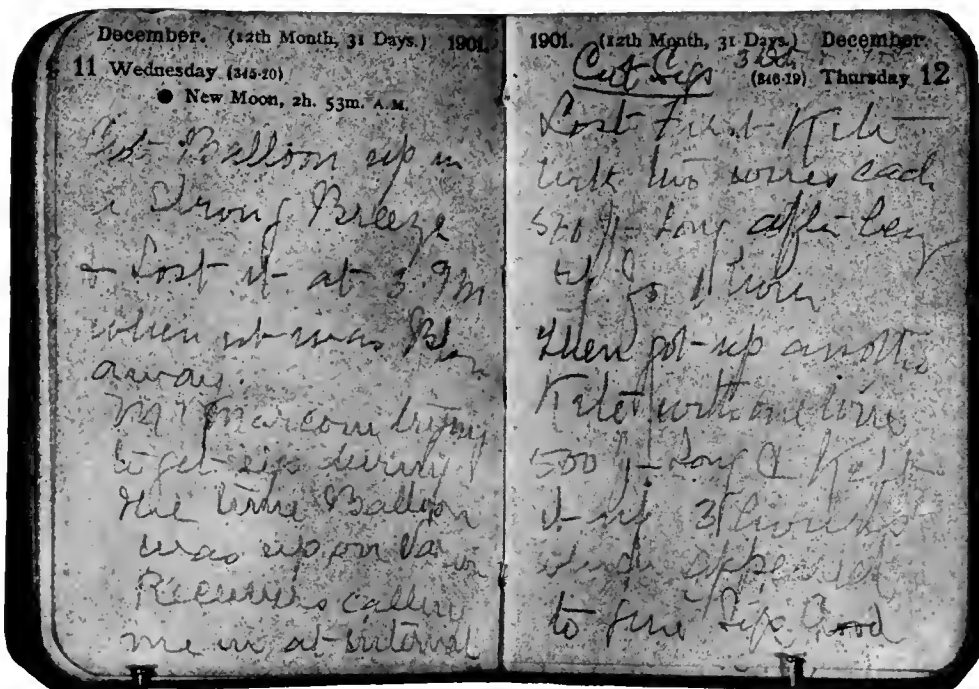 December. (12th Month, 31 Days.) 1901.
11 Wednesday (345-20)
● New Moon, 2h. 53m. A.M.
Got Balloon up in
a Strong Breeze
& Lost it at 3 PM
when it was
away.
Mr Marconi trying
to get sigs during
the time Balloon
was up on
Receivers calling
me in at interval
1901. (12th Month, 31 Days.) December.
Got Sigs
(346-19) Thursday 12
Lost First Kite
with two wires each
510 ft Long after being
up for 1 hour
then got up another
Kite with one wire
500 ft Long & Kept
it up 3 hours
which appeared
to give Sigs Good